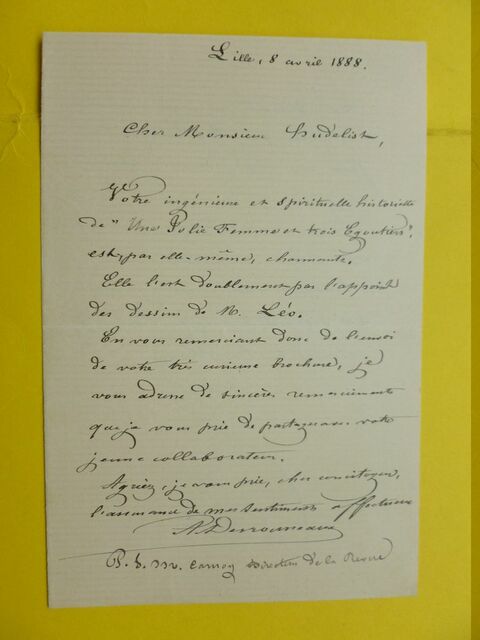 Lille, 8 avril 1888.
Cher Monsieur Hudelist,
Votre ingénieuse et spirituelle historiette
de "Une Jolie Femme et trois Egoutiers",
est, par elle-même, charmante.
Elle l'est doublement par l'appoint
des dessins de M. Léo.
En vous remerciant donc de l'envoi
de votre très curieuse brochure, je
vous adresse de sincères remerciements
que je vous prie de partager avec votre
jeune collaborateur.
Agréez, je vous prie, cher concitoyen,
l'assurance de mes sentiments affectueux
A. Desrousseaux
Carnoy Directeur de la Revue